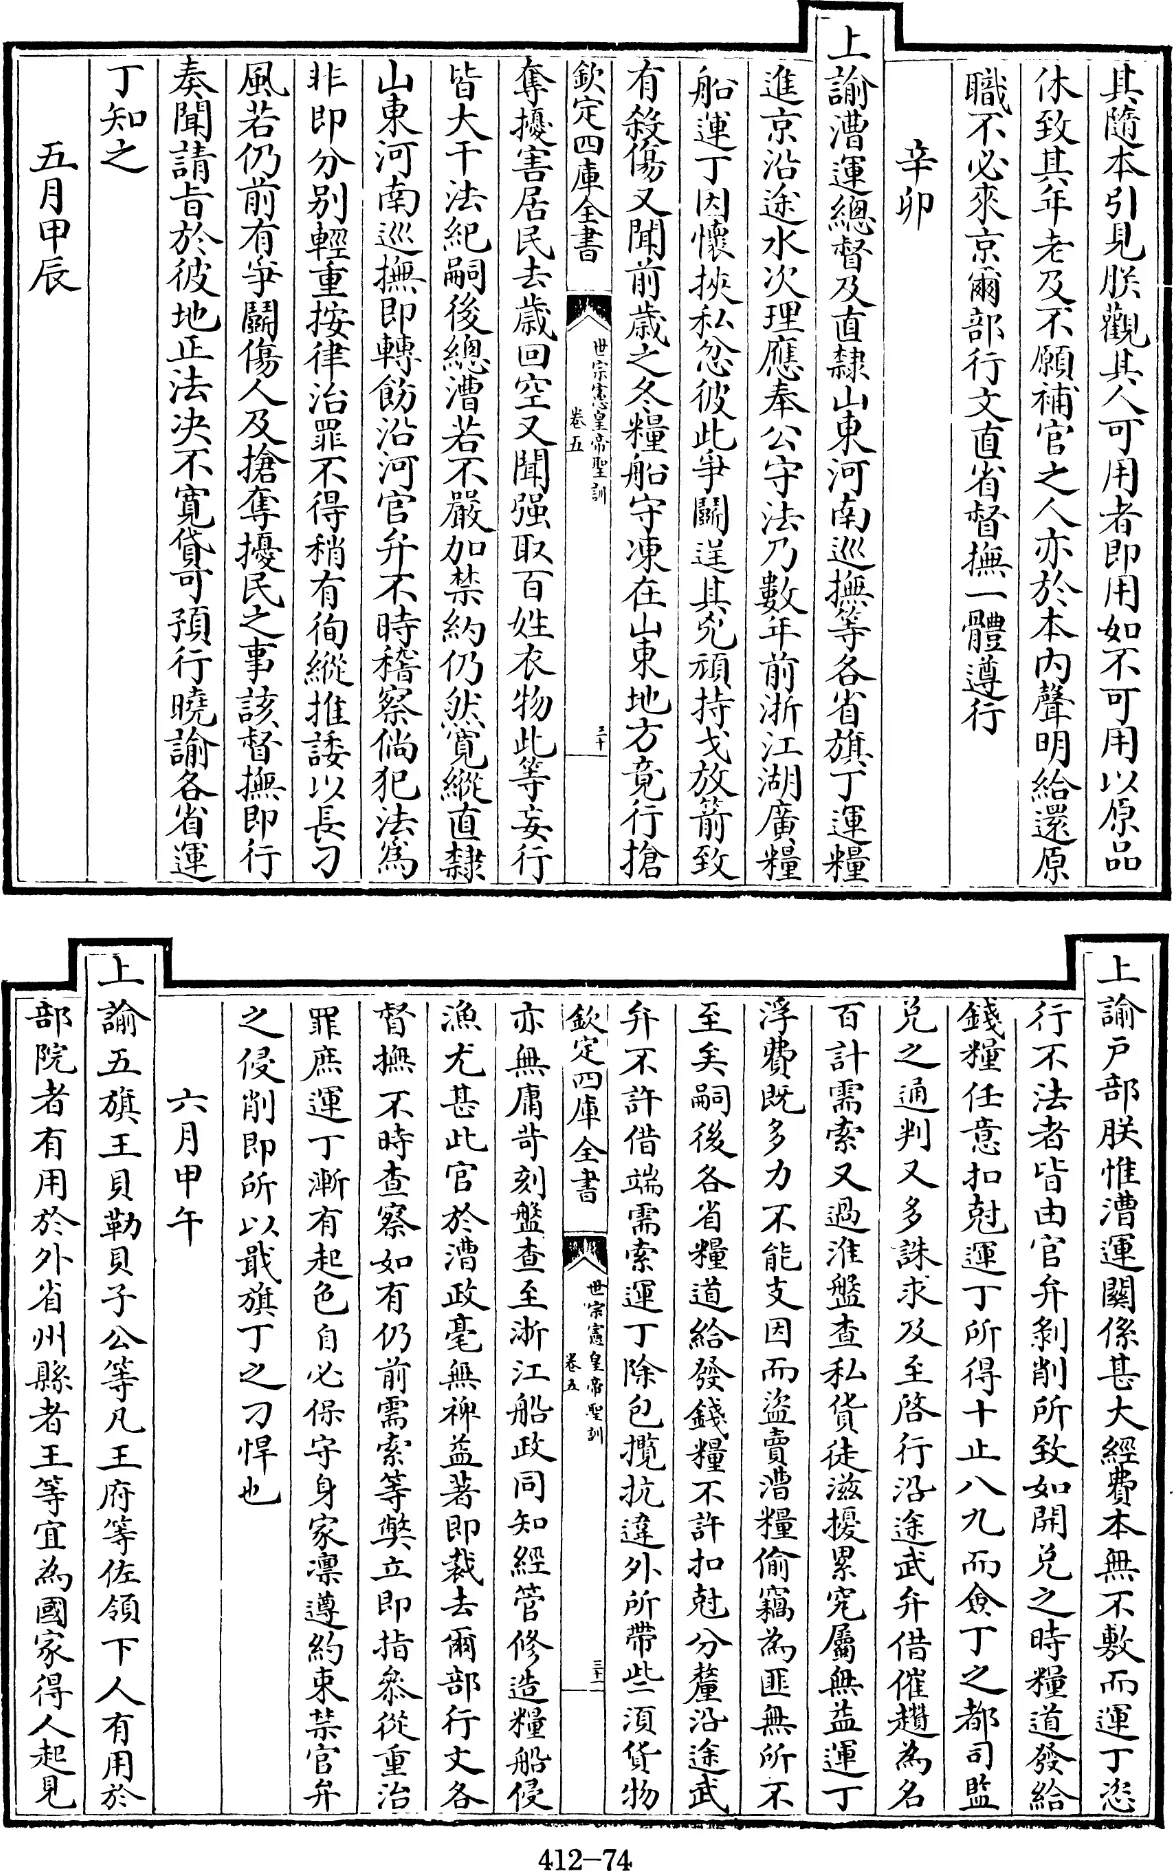 其隨本引見朕觀其人可用者即用如不可用以原品
休致其年老及不願補官之人亦於本內聲明給還原
職不必來京爾部行文直省督撫一體遵行
辛卯
上諭漕運總督及直隸山東河南巡撫等各省旗丁運糧
進京沿途水次理應奉公守法乃數年前浙江湖廣糧
船運丁因懷挾私忿彼此爭鬬逞其兇頑持戈放箭致
有殺傷又聞前歲之冬糧船守凍在山東地方竟行搶
欽定四庫全書
世宗憲皇帝聖訓
卷五
三十
奪擾害居民去歲回空又聞强取百姓衣物此等妄行
皆大干法紀嗣後總漕若不嚴加禁約仍然寬縱直隸
山東河南巡撫即轉飭沿河官弁不時稽察倘犯法為
非即分别輕重按律治罪不得稍有徇縱推諉以長刁
風若仍前有爭鬬傷人及搶奪擾民之事該督撫即行
奏聞請旨於彼地正法決不寬貸可預行曉諭各省運
丁知之
五月甲辰
上諭戸部朕惟漕運關係甚大經費本無不敷而運丁恣
行不法者皆由官弁剝削所致如開兌之時糧道發給
錢糧任意扣尅運丁所得十止八九而僉丁之都司監
兌之通判又多誅求及至啓行沿途武弁借催趲為名
百計需索又過淮盤查私貨徒滋擾累究屬無益運丁
浮費既多力不能支因而盜賣漕糧偷竊為匪無所不
至矣嗣後各省糧道給發錢糧不許扣尅分釐沿途武
弁不許借端需索運丁除包攬抗違外所帶些須貨物
欽定四庫全書
世宗憲皇帝聖訓
卷五
三十一
亦無庸苛刻盤查至浙江船政同知經管修造糧船侵
漁尤甚此官於漕政毫無裨益著即裁去爾部行文各
督撫不時查察如有仍前需索等獘立即指叅從重治
罪庶運丁漸有起色自必保守身家凛遵約束禁官弁
之侵削即所以戢旗丁之刁悍也
六月甲午
上諭五旗王貝勒貝子公等凡王府等佐領下人有用於
部院者有用於外省州縣者王等宜為國家得人起見
412-74